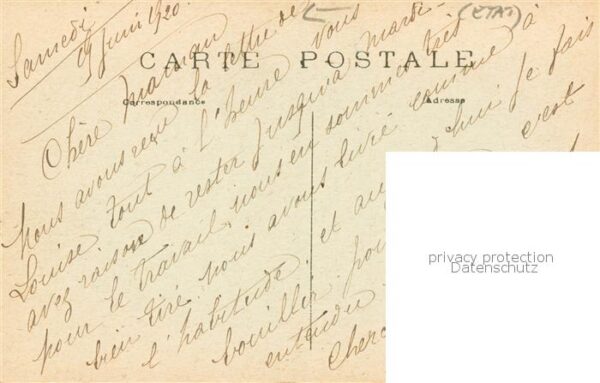 Samedi
19 Juin 1920
(ETAT)
CARTE POSTALE
Correspondance
Adresse
Chère Maman
nous avons reçu la lettre de
Louise tout à l'heure vous
avez raison de rester jusqu'à mardi
pour le travail, nous en sommes très
bien tiré nous avons livré comme à
l'habitude, et au hui je fais
bouillir pou c'est
entendu.
Cherc
privacy protection
Datenschutz